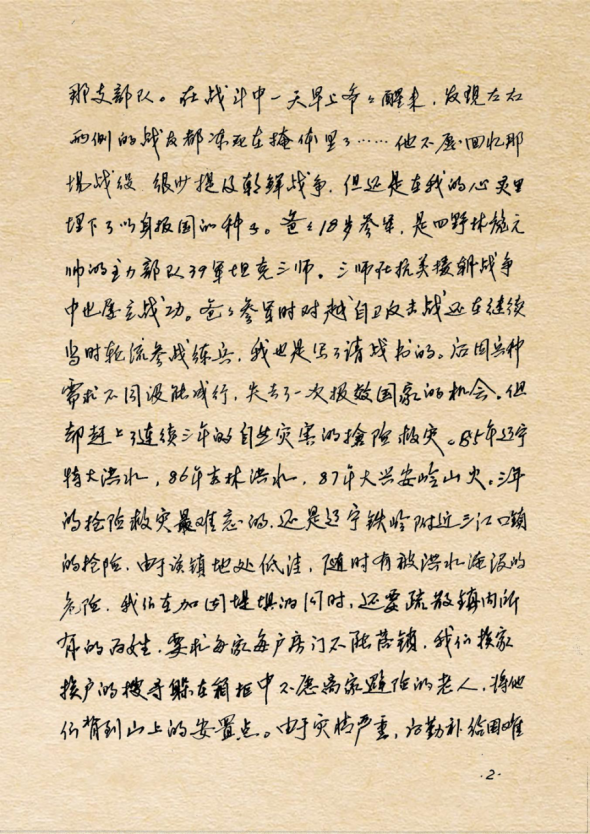 那支部队。在战斗中一天早上爷々醒来,发现左右
两侧的战友都冻死在掩体里了……他不愿回忆那
场战役 很少提及朝鲜战争,但还是在我的心灵里
埋下了以身报国的种子。爸々18岁参军,是四野林彪元
帅的主力部队39军坦克三师。三师在抗美援朝战争
中也屡立战功。爸々参军时对越自卫反击战还在继续
当时轮流参战练兵,我也是写了请战书的。后因兵种
需求不同没能成行,失去了一次报效国家的机会。但
却赶上了连续三年的自然灾害的抢险救灾。85年辽宁
特大洪水,86年吉林洪水,87年大兴安岭山火。三年
的抢险救灾最难忘的,还是辽宁铁岭附近三江口镇
的抢险,由于该镇地处低洼,随时有被洪水淹没的
危险,我们在加固堤坝的同时,还要疏散镇内所
有的百姓,要求每家每户房门不能落锁,我们挨家
挨户的搜寻躲在箱柜中不愿离家避险的老人,将他
们背到山上的安置点。由于灾情严重,后勤补给困难
·2·